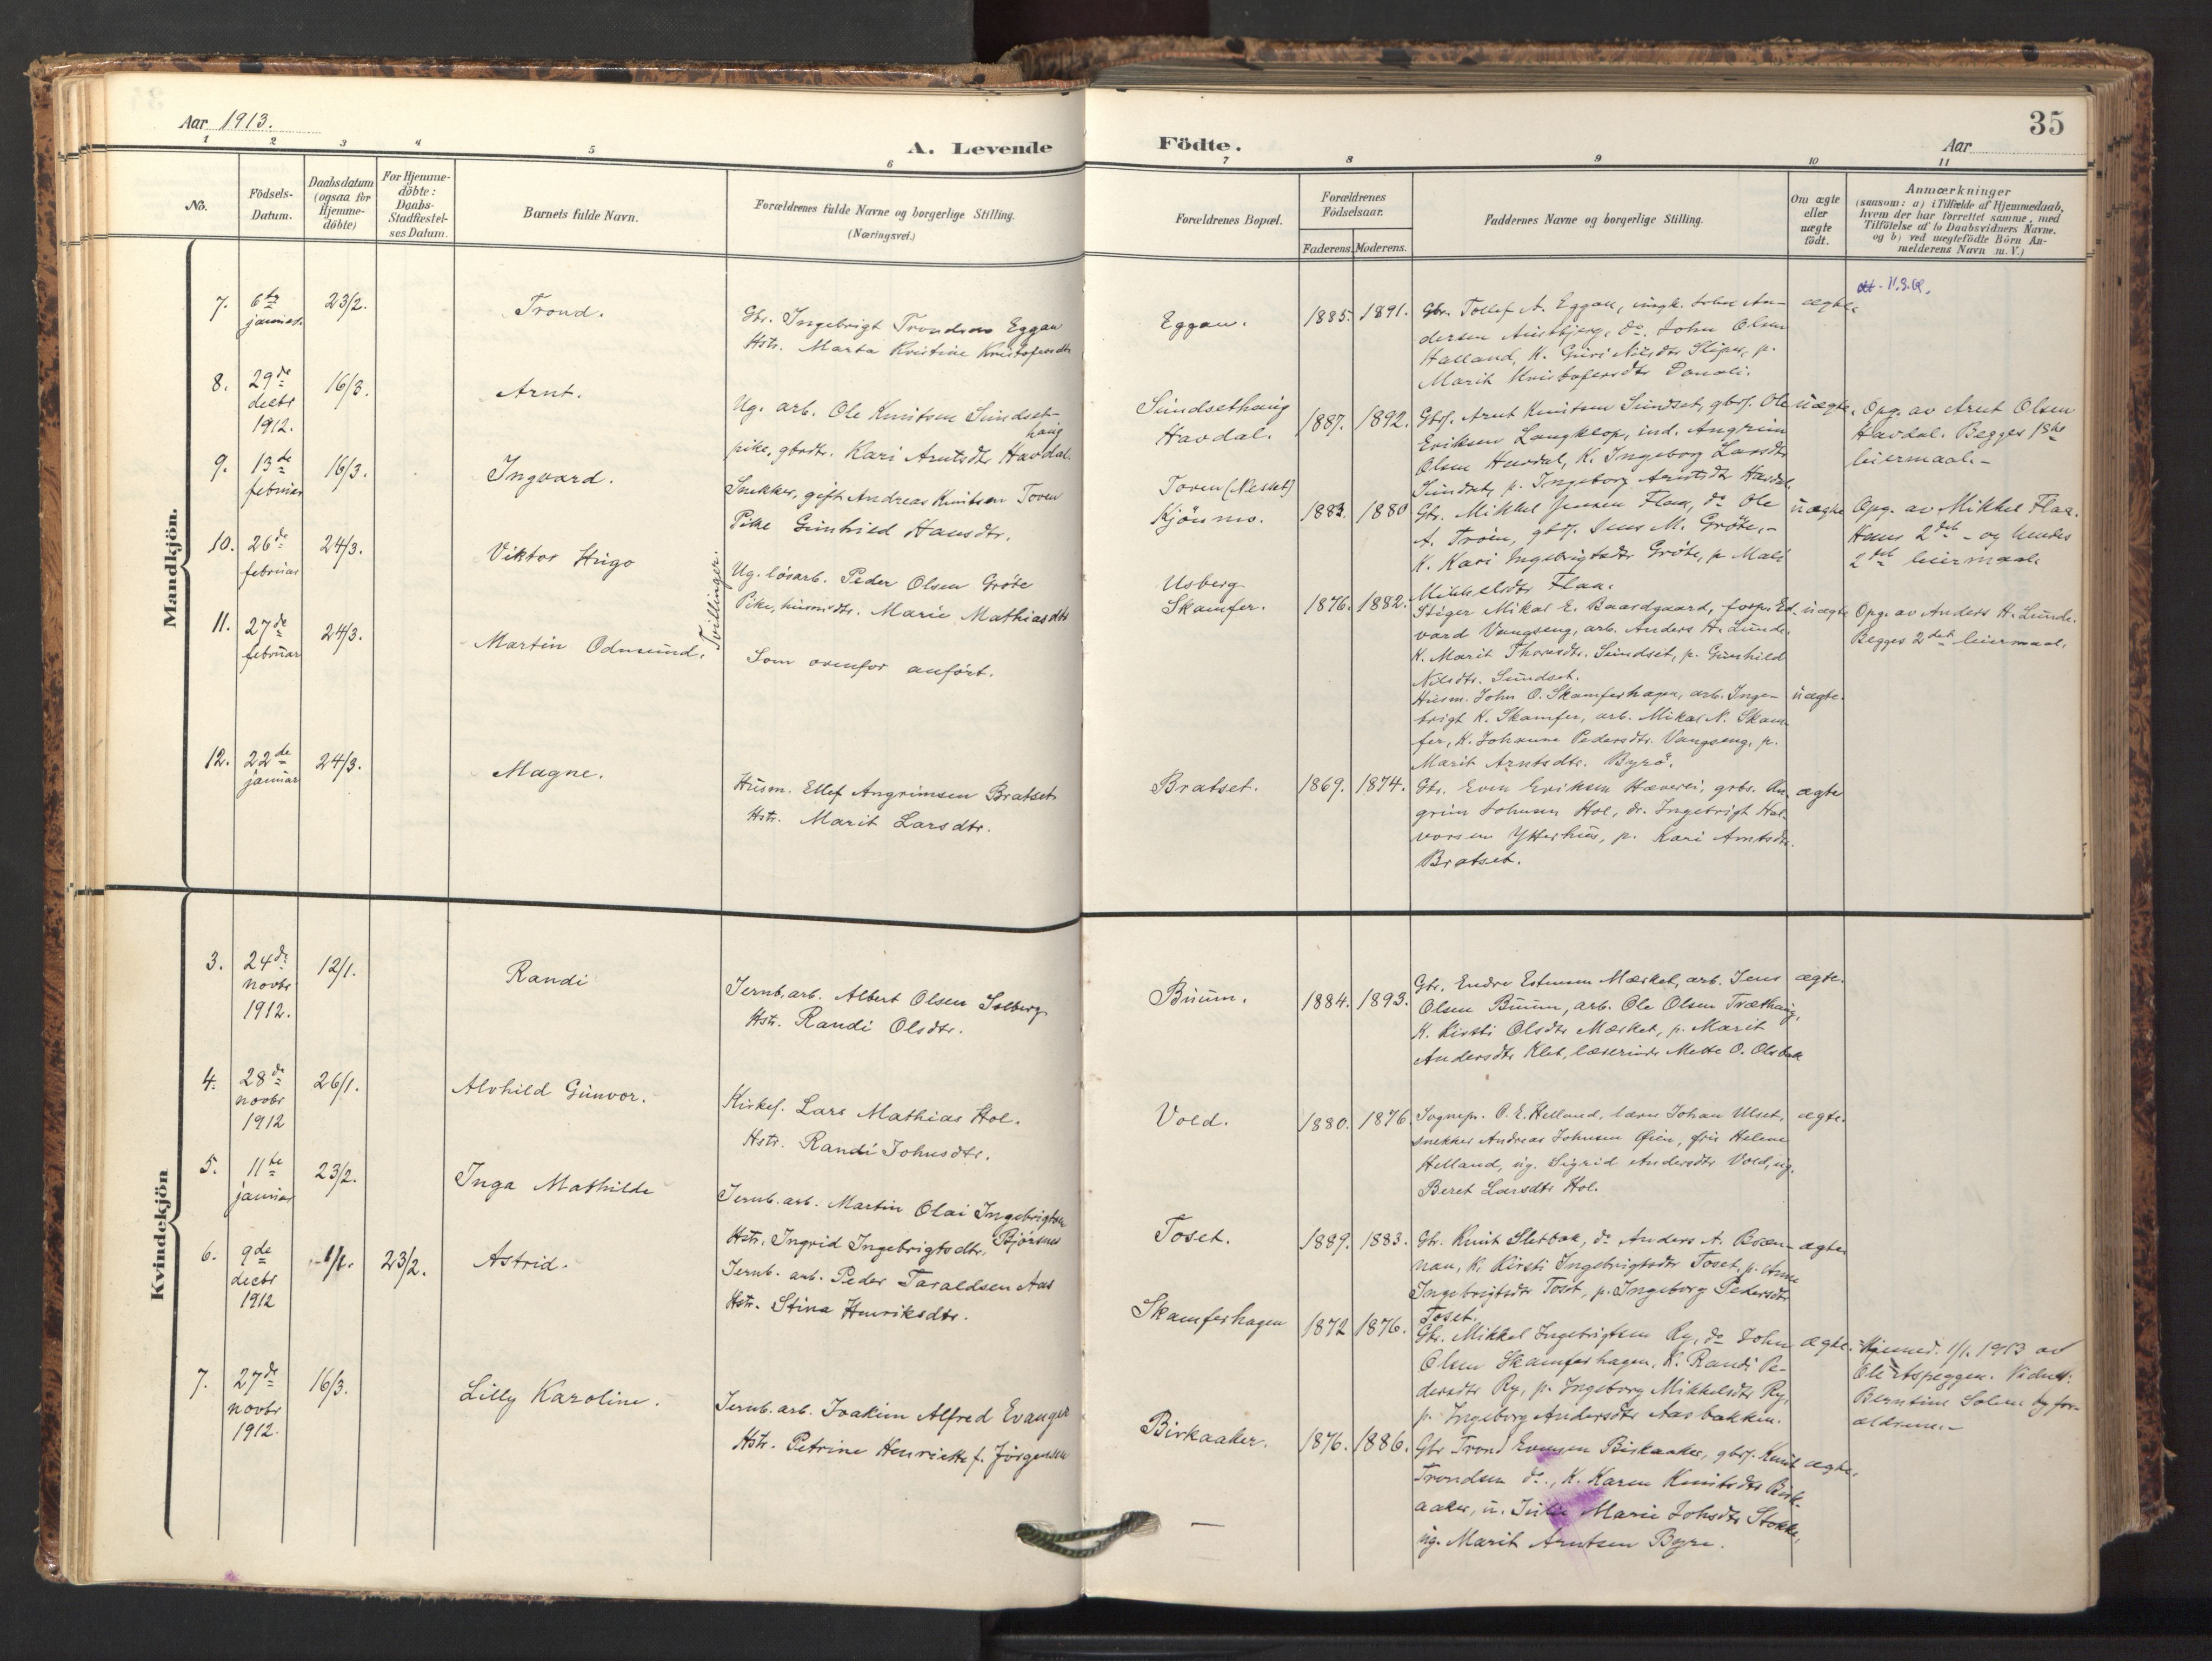 Aar 1913.
A. Levende
Födte.
Aar
35
1 2 3 4 5 6 7 8 9 10 11
No.
Födsels-
Datum.
Daabsdatum
(ogsaa for
Hjemme-
döbte)
For Hjemme-
döbte:
Daabs-
Stadfæstel-
ses Datum.
Barnets fulde Navn.
Forældrenes fulde Navne og borgerlige Stilling.
(Næringsvei.)
Forældrenes Bopæl.
Forældrenes
Födselsaar.
Faderens. Moderens.
Faddernes Navne og borgerlige Stilling.
Om ægte
eller
uægte
födt.
Anmærkninger
(saasom: a) i Tilfælde af Hjemmedaab,
hvem der har forrettet samme, med
Tilföielse af to Daabsvidners Navne.
og b) ved uægtefödte Börn An-
melderens Navn m. V.)
Mandkjön.
7.
6te
januar.
23/2.
Trond.
Gbr. Ingebrigt Trondsen Eggan
Hstr. Marta Kristine Kristofersdtr
Eggan.
1885. 1891.
Gbr. Tollef A. Eggan, ungk. John An-
dersen Austbjerg, do. John Olsen
Halland, K. Guri Nilsdtr Sliper, p.
Marit Kristofersdtr
ægte.
11.3.
8.
29de
decbr
1912.
16/3.
Arnt.
Ug. arb. Ole Knutsen Sundset-
haug
pike, gbrdtr. Kari Arntsdtr Havdal.
Sundsethaug
Havdal.
1887. 1892.
Gbrs. Arnt Knutsen Sundset, gbrs. Ole
Eriksen Langklop, ind. Angrim
Olsen Husdal, K. Ingeborg Larsdtr
Sundset, p. Ingeborg Arntsdtr Havdal.
uægte.
Opg. av Arnt Olsen
Havdal. Begges 1ste
leiermaal.-
9.
13de
februar
16/3.
Ingvard.
Snekker, gift Andreas Knutsen Toven
Pike Gunhild Hansdtr.
Toven (Nesset)
Kjönmo.
1883. 1880
Gbr. Mikkel Jensen Flaa, do Ole
A. Troen, gbrs. Jens M. Gröte,-
K. Kari Ingebrigtsdtr Gröte, p Mali
Mikkelsdtr Flaa.
uægte
Opg. av Mikkel Flaa.
Hans 2det - og hendes
2det leiermaal.
10.
26de
februar
24/3.
Viktor Hugo
Tvillinger.
Ug. lösarb. Peder Olsen Gröte
Pike, husmdtr. Marie Mathiasdtr
Usberg
Skamfer.
1876. 1882.
Stiger Mikal E. Baardgaard, forp. Ed-
vard Vangseng, arb. Anders H. Lunde.
K. Marit Thoresdtr. Sundset, p. Gunhild
Nilsdtr. Sundset.
uægte
Opg. av Anders H. Lunde.
Begges 2det leiermaal.
11.
27de
februar
24/3.
Martin Odmund.
Som ovenfor anfört.
Husm. John O. Skamferhagen, arb. Inge-
brigt K. Skamfer, arb. Mikal N. Skam-
fer, K. Johanna Pedersdtr. Vangseng, p.
Marit Arntsdtr. Byrö.
uægte.
12.
22de
januar
24/3.
Magne.
Husm. Ellef Angrimsen Bratset
Hstr. Marit Larsdtr.
Bratset.
1869. 1874.
Gbr. Even Eriksen Hæverei, grbr. An-
grim Johnsen Hol, dr. Ingebrigt Hal-
vorsen Ytterhus, p. Kari Arntsdtr.
Bratset.
ægte
Kvindekjön
3.
24de
novbr
1912.
12/1.
Randi
Jernb. arb. Albert Olsen Solberg
Hstr. Randi Olsdtr.
Buum.
1884. 1893.
Gbr. Endre Estensen Mærket, arb. Jens
Olsen Buum, arb. Ole Olsen Træthaug,
K. Kirsti Olsdtr Mærket, p. Marit
Andersdtr Klet, læserinde Mette O. Olsbak
ægte.
4.
28de
novbr
1912
26/1.
Alvhild Gunvor.
Kirkes. Lars Mathias Hol.
Hstr. Randi Johnsdtr.
Vold.
1880. 1876
Sognepr. O. E. Helland, lærer Johan Ulset,
snekker Andreas Johnsen Öien, frk Helene
Helland, ug. Sigrid Andersdtr Vold, ug.
Beret Larsdtr Hol.
ægte.
5.
11te
januar
23/2.
Inga Mathilde
Jernb. arb. Martin Olai Ingebrigtsen
Hstr. Ingrid Ingebrigtsdtr. Björsnes
Toset.
1889. 1883.
Gbr. Knut Sletbak, do Anders A. Bræn-
nan, K. Kirsti Ingebrigtsdtr Toset, p. Anne
Ingebrigtsdtr Toset, p. Ingeborg Pedersdtr
Toset.
ægte
6.
9de
decbr
1912
1/1.
23/2.
Astrid.
Jernb. arb. Peder Taraldsen Aas
Hstr. Stina Henriksdtr.
Skamferhagen
1872 1876.
Gbr. Mikkel Ingebrigtsen Ry, do John
Olsen Skamferhagen, K. Randi Pe-
dersdtr Ry, p. Ingeborg Mikkelsdtr Ry,
p. Ingeborg Andersdtr Aasbakken.
ægte.
Hjemmed. 1/1. 1913 av
Oli Aspeggen. Vidner:
Berntine Solem og for-
ældrene.-
7.
27de
novbr
1912.
16/3.
Lilly Karoline.
Jernb. arb. Joakim Alfred Evanger
Hstr. Petrine Henriette f. Jörgensen
Birkaaker.
1876. 1886.
Gbr Trond Evensen Birkaaker, gbrs. Knut
Trondsen do., K. Karen Knutsdtr Birk-
aaker, u. Julie Marie Johsdtr Stokke,
ug. Marit Arntsen Byrø.
ægte.